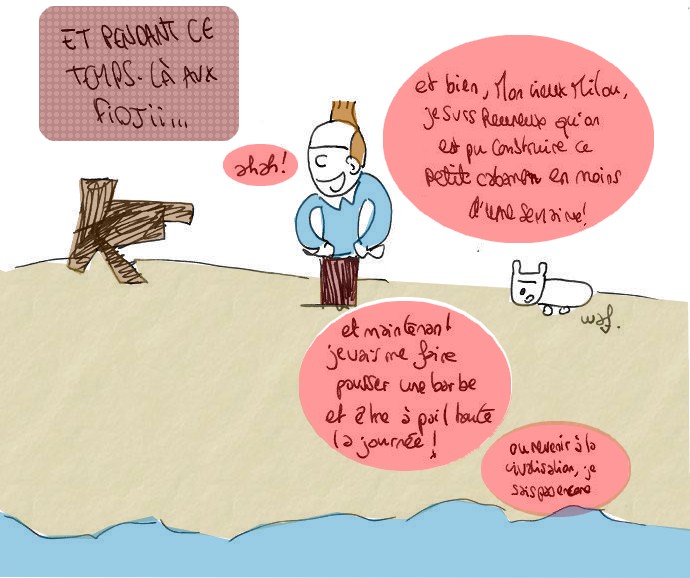 ET PENDANT CE
TEMPS-LÀ AUX
FIDJII...
ahah!
et bien, Mon vieux Milou,
je suis heureux qu'on
est pu construire ce
petit cabanon en moins
d'une semaine!
waf.
et maintenant
je vais me faire
pousser une barbe
et être à poil toute
la journée!
ou revenir à la
civilisation, je
sais pas encore